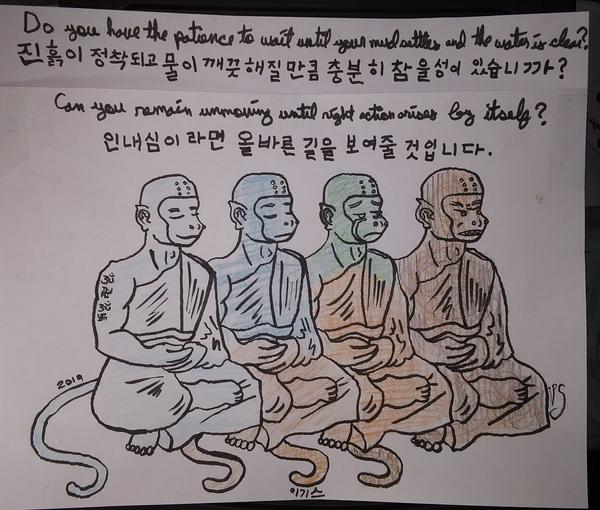 Do you have the patience to wait until your mud settles and the water is clear?
진흙이 정착되고 물이 깨끗해질 만큼 충분히 참을성이 있습니까?
Can you remain unmoving until right action arises by itself?
인내심이라면 올바른 길을 보여줄 것입니다.
2019
이기스